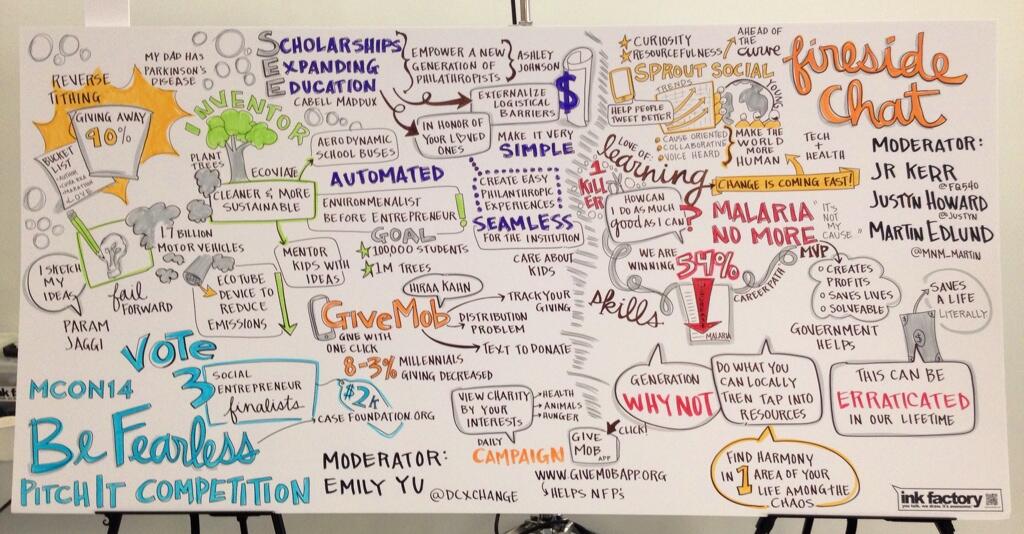 REVERSE
TITHING
GIVING AWAY
90%
BUCKET
LIST
MY DAD HAS
PARKINSON'S
DISEASE
INVENTOR
PLANT
TREES
ECOVIATE
CLEANER & MORE
SUSTAINABLE
AERODYNAMIC
SCHOOL BUSES
ENVIRONMENALIST
BEFORE ENTREPRENEUR
GOAL
100000 STUDENTS
1M TREES
MENTOR
KIDS WITH
IDEAS
1.7 BILLION
MOTOR VEHICLES
ECOTUBE
DEVICE TO
REDUCE
EMISSIONS
I SKETCH
MY
IDEAS
fail
FORWARD
PARAM
JAGGI
SCHOLARSHIPS
EXPANDING
EDUCATION
CABELL MADDUX
EMPOWER A NEW
GENERATION OF
PHILANTHROPISTS
ASHLEY
JOHNSON
EXTERNALIZE
LOGISTICAL
BARRIERS
$
IN HONOR OF
YOUR LOVED
ONES
AUTOMATED
MAKE IT VERY
SIMPLE
CREATE EASY
PHILANTHROPIC
EXPERIENCES
SEAMLESS
FOR THE INSTITUTION
CARE ABOUT
KIDS
HIRAA KAHN
GiveMob
GIVE WITH
ONE CLICK
DISTRIBUTION
PROBLEM
TRACK YOUR
GIVING
TEXT TO DONATE
8-3% MILLENNIALS
GIVING DECREASED
VIEW CHARITY
BY YOUR
INTERESTS
HEALTH
ANIMALS
HUNGER
DAILY
CAMPAIGN
GIVE
MOB
APP
CLICK!
WWW.GIVEMOBAPP.ORG
HELPS NFP's
VOTE
3 SOCIAL
ENTREPRENEUR
finalists
$2K
CASE FOUNDATION.ORG
MCON14
Be Fearless
PITCH IT COMPETITION
MODERATOR:
EMILY YU @DCXCHANGE
CURIOSITY
RESOURCEFULNESS
AHEAD OF
THE
curve
SPROUT SOCIAL
TRENDS
HELP PEOPLE
TWEET BETTER
YOUNG
CAUSE ORIENTED
COLLABORATIVE
VOICE HEARD
MAKE THE
WORLD
MORE
HUMAN
TECH
+
HEALTH
CHANGE IS COMING FAST!
LOVE OF:
learning
1
KILLER
HOW CAN
I DO AS MUCH
good AS I CAN?
MALARIA
NO MORE
"IT'S
NOT
MY
CAUSE"
WE ARE
WINNING
54%
MALARIA
CAREER PATH
MVP
CREATES
PROFITS
SAVES LIVES
SOLVEABLE
GOVERNMENT
HELPS
SAVES
A LIFE
LITERALLY
skills
GENERATION
WHY NOT
DO WHAT YOU
CAN LOCALLY
THEN TAP INTO
RESOURCES
THIS CAN BE
ERRATICATED
IN OUR LIFETIME
FIND HARMONY
IN 1 AREA OF YOUR
LIFE AMONG THE
CHAOS
fireside
chat
MODERATOR:
JR KERR
@FQ540
JUSTIN HOWARD
@JUSTYN
MARTIN EDLUND
@MNM_MARTIN
ink factory
you talk. we draw. it's awesome.